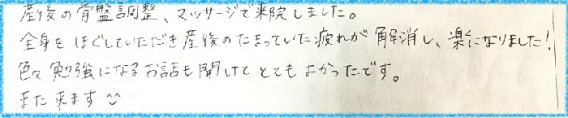 産後の骨盤調整、マッサージで来院しました。
全身をほぐしていただき産後のたまっていた疲れが解消し、楽になりました!
色々勉強になるお話も聞けてとてもよかったです。
また来ます